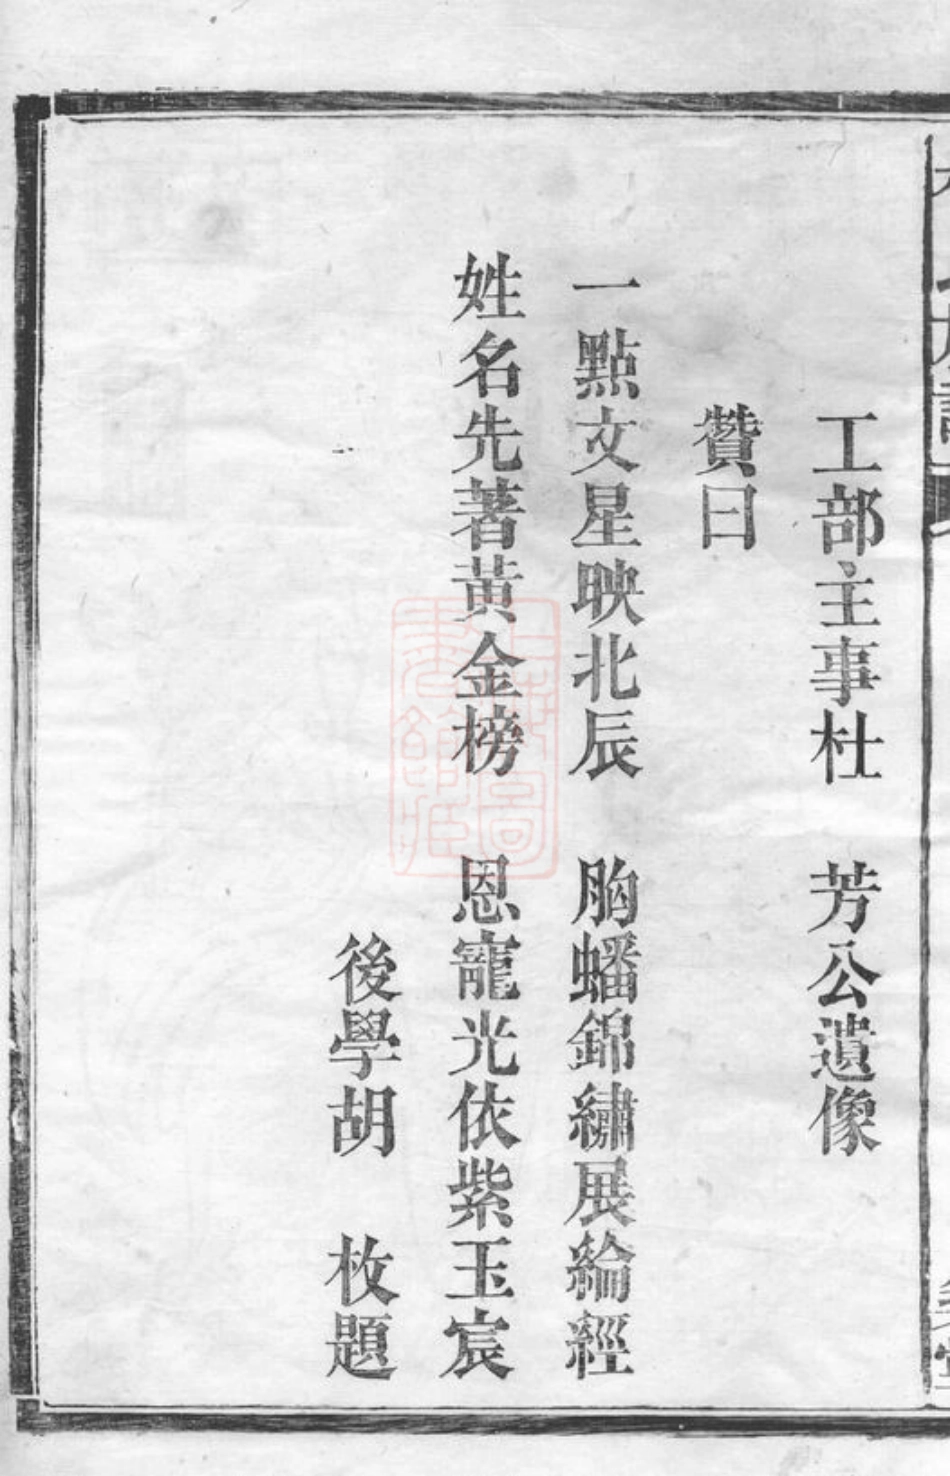 工部主事杜　芳公遺像
贊曰
一點文星映北辰　胸蟠錦繡展綸經
姓名先著黃金榜　恩寵光依紫玉宸
後學胡　枚題